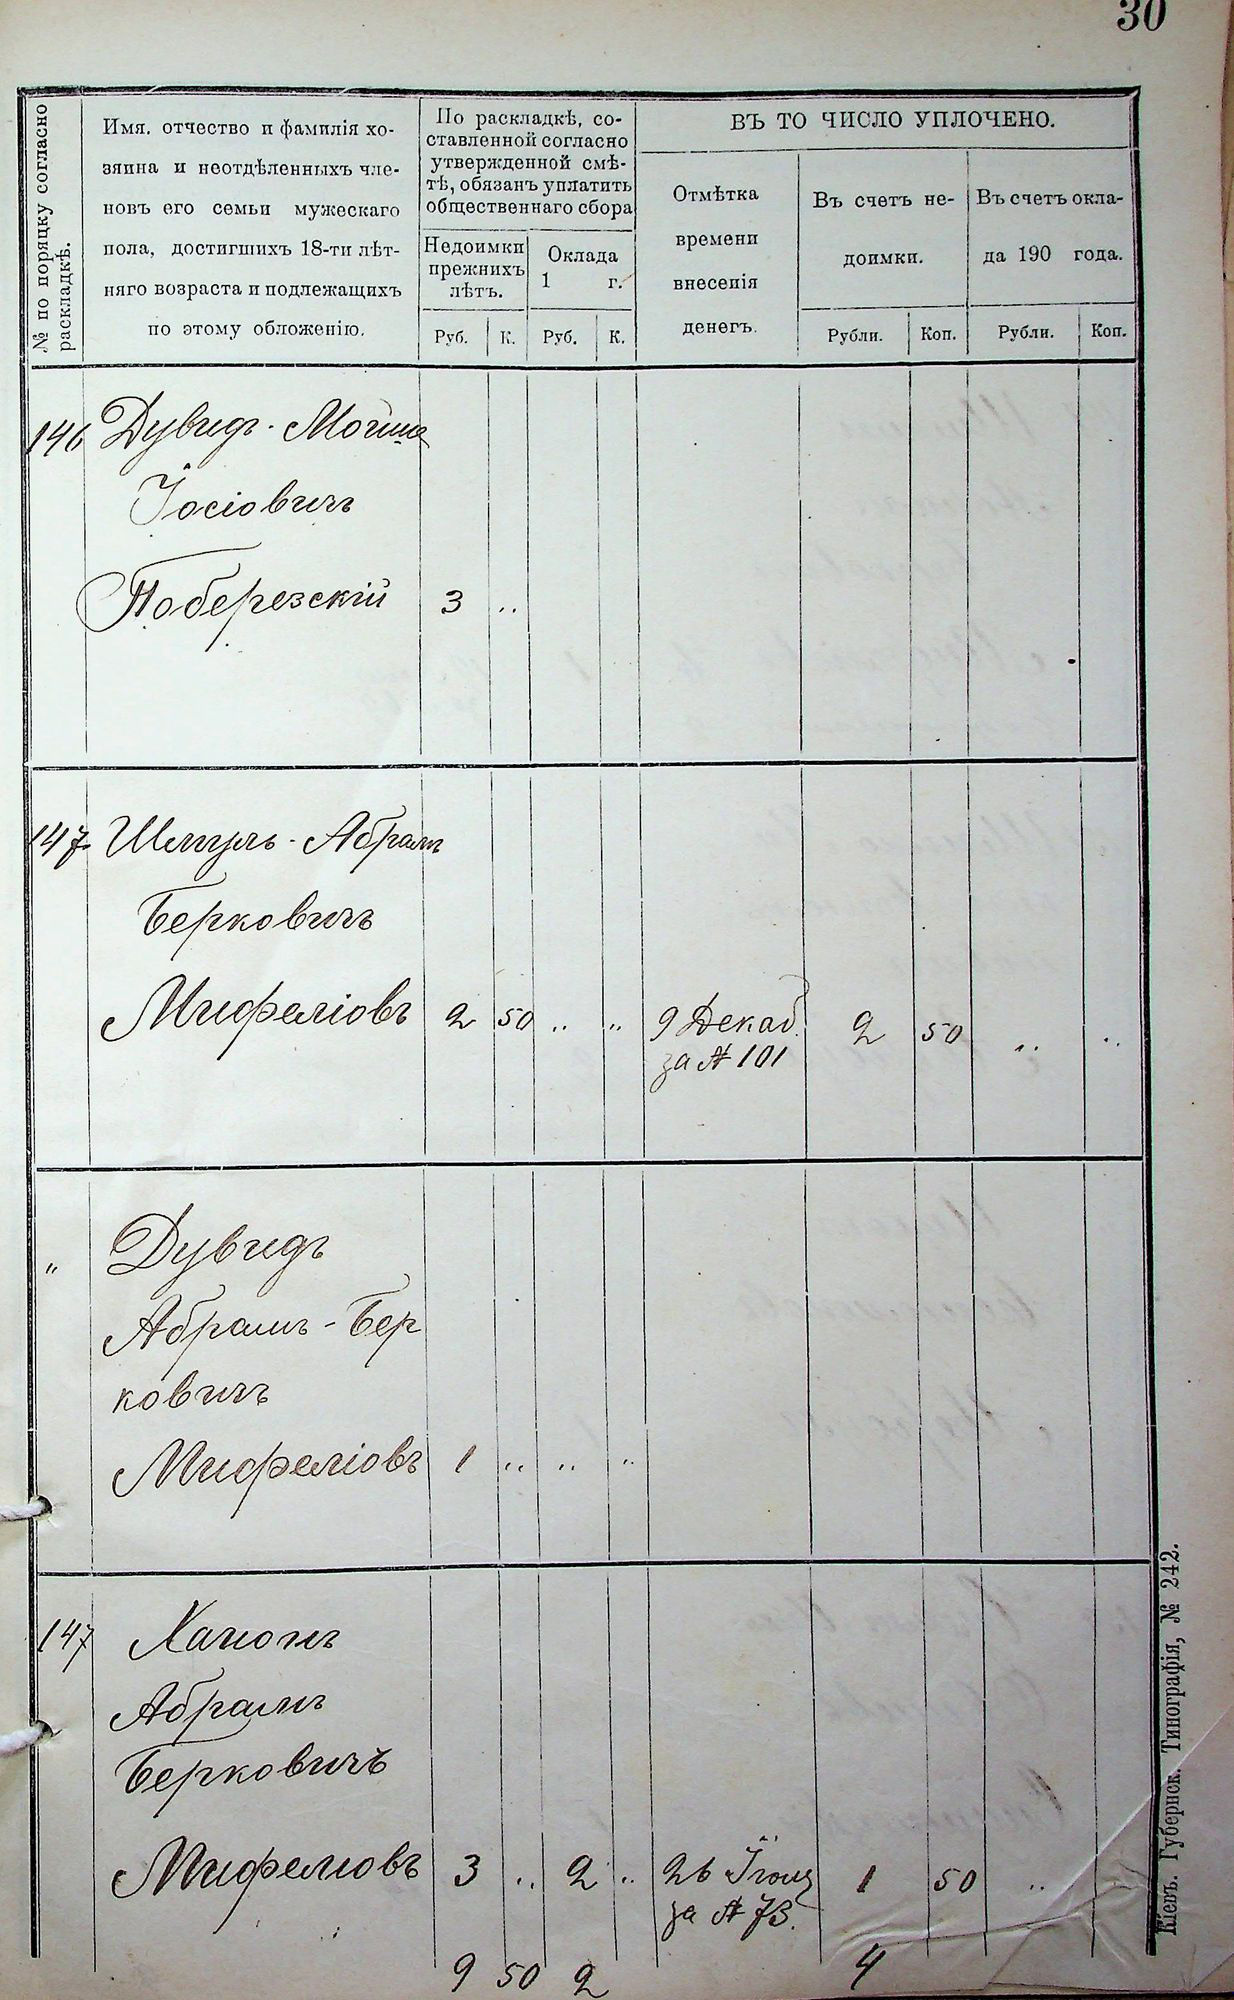 30
№ по порядку согласно
раскладкѣ.
Имя, отчество и фамилія хо-
зяина и неотдѣленныхъ чле-
новъ его семьи мужескаго
пола, достигшихъ 18-ти лѣт-
няго возраста и подлежащихъ
по этому обложенію.
По раскладкѣ, со-
ставленной согласно
утвержденной смѣ-
тѣ, обязанъ уплатить
общественнаго сбора
Недоимки
прежнихъ
лѣтъ.
Оклада
1 г.
Руб. К. Руб. К.
ВЪ ТО ЧИСЛО УПЛОЧЕНО.
Отмѣтка
времени
внесенія
денегъ.
Въ счетъ не-
доимки.
Въ счетъ окла-
да 190 года.
Рубли. Коп. Рубли. Коп.
146 Дувидъ-Мошие
Іосіовичъ
Поберезскій 3 "
147 Шмуль-Абрамъ
Берковичъ
Мифеліовъ 2 50 " " 9 Декаб. 2 50 " "
за № 101
" Дувидъ
Абрамъ-Бер
ковичъ
Мифеліовъ 1 " " "
147
Абрамъ
Берковичъ
Мифеліовъ 3 " 2 " 26 1 50 "
за № 73.
9 50 2 4
Кіевъ. Губернск. Типографія, № 242.